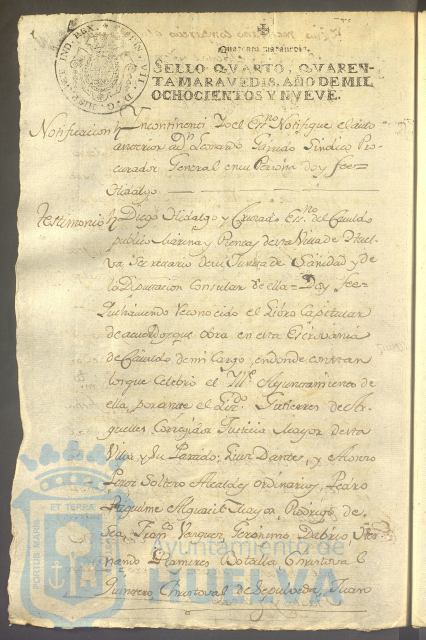 Quarenta maravedis.
SELLO QVARTO, QVAREN-
TA MARAVEDIS, AÑO DE MIL
OCHOCIENTOS Y NVEVE.
Notificacion Yncontinenti Yo el Esno Notifique el auto
anterior a Dn Leonardo Garrido Sindico Pro-
curador General en su Persona doy fee=
Hidalgo
Testimonio Diego Hidalgo y Cruzado Esno del Cavildo
publico Marina y Rentas de esta Villa de Huel-
va Secretario de su Junta de Sanidad y de
la Diputacion Consular de ella= Doy fee=
Que haviendo reconocido el Libro Capitular
de acuerdos que obra en esta Escrivania
de Cavildo de mi cargo, en donde constan
los que celebró el Ayuntamiento de
ella, por ante el Gutierres de Ar-
guelles Corregidor Justicia Mayor de esta
Villa y Su Luis Dantes, y Alonso
Perez Soltero Alcaldes ordinarios, Pedro
Alguacil Mayor, Rodrigo de
Franco Vazquez, Geronimo
nando Ramires Botalla Christova
Quintero Christoval de Sepulveda, Juan
PORTUS MARIS ET TERRAE
Ayuntamiento de
HUELVA